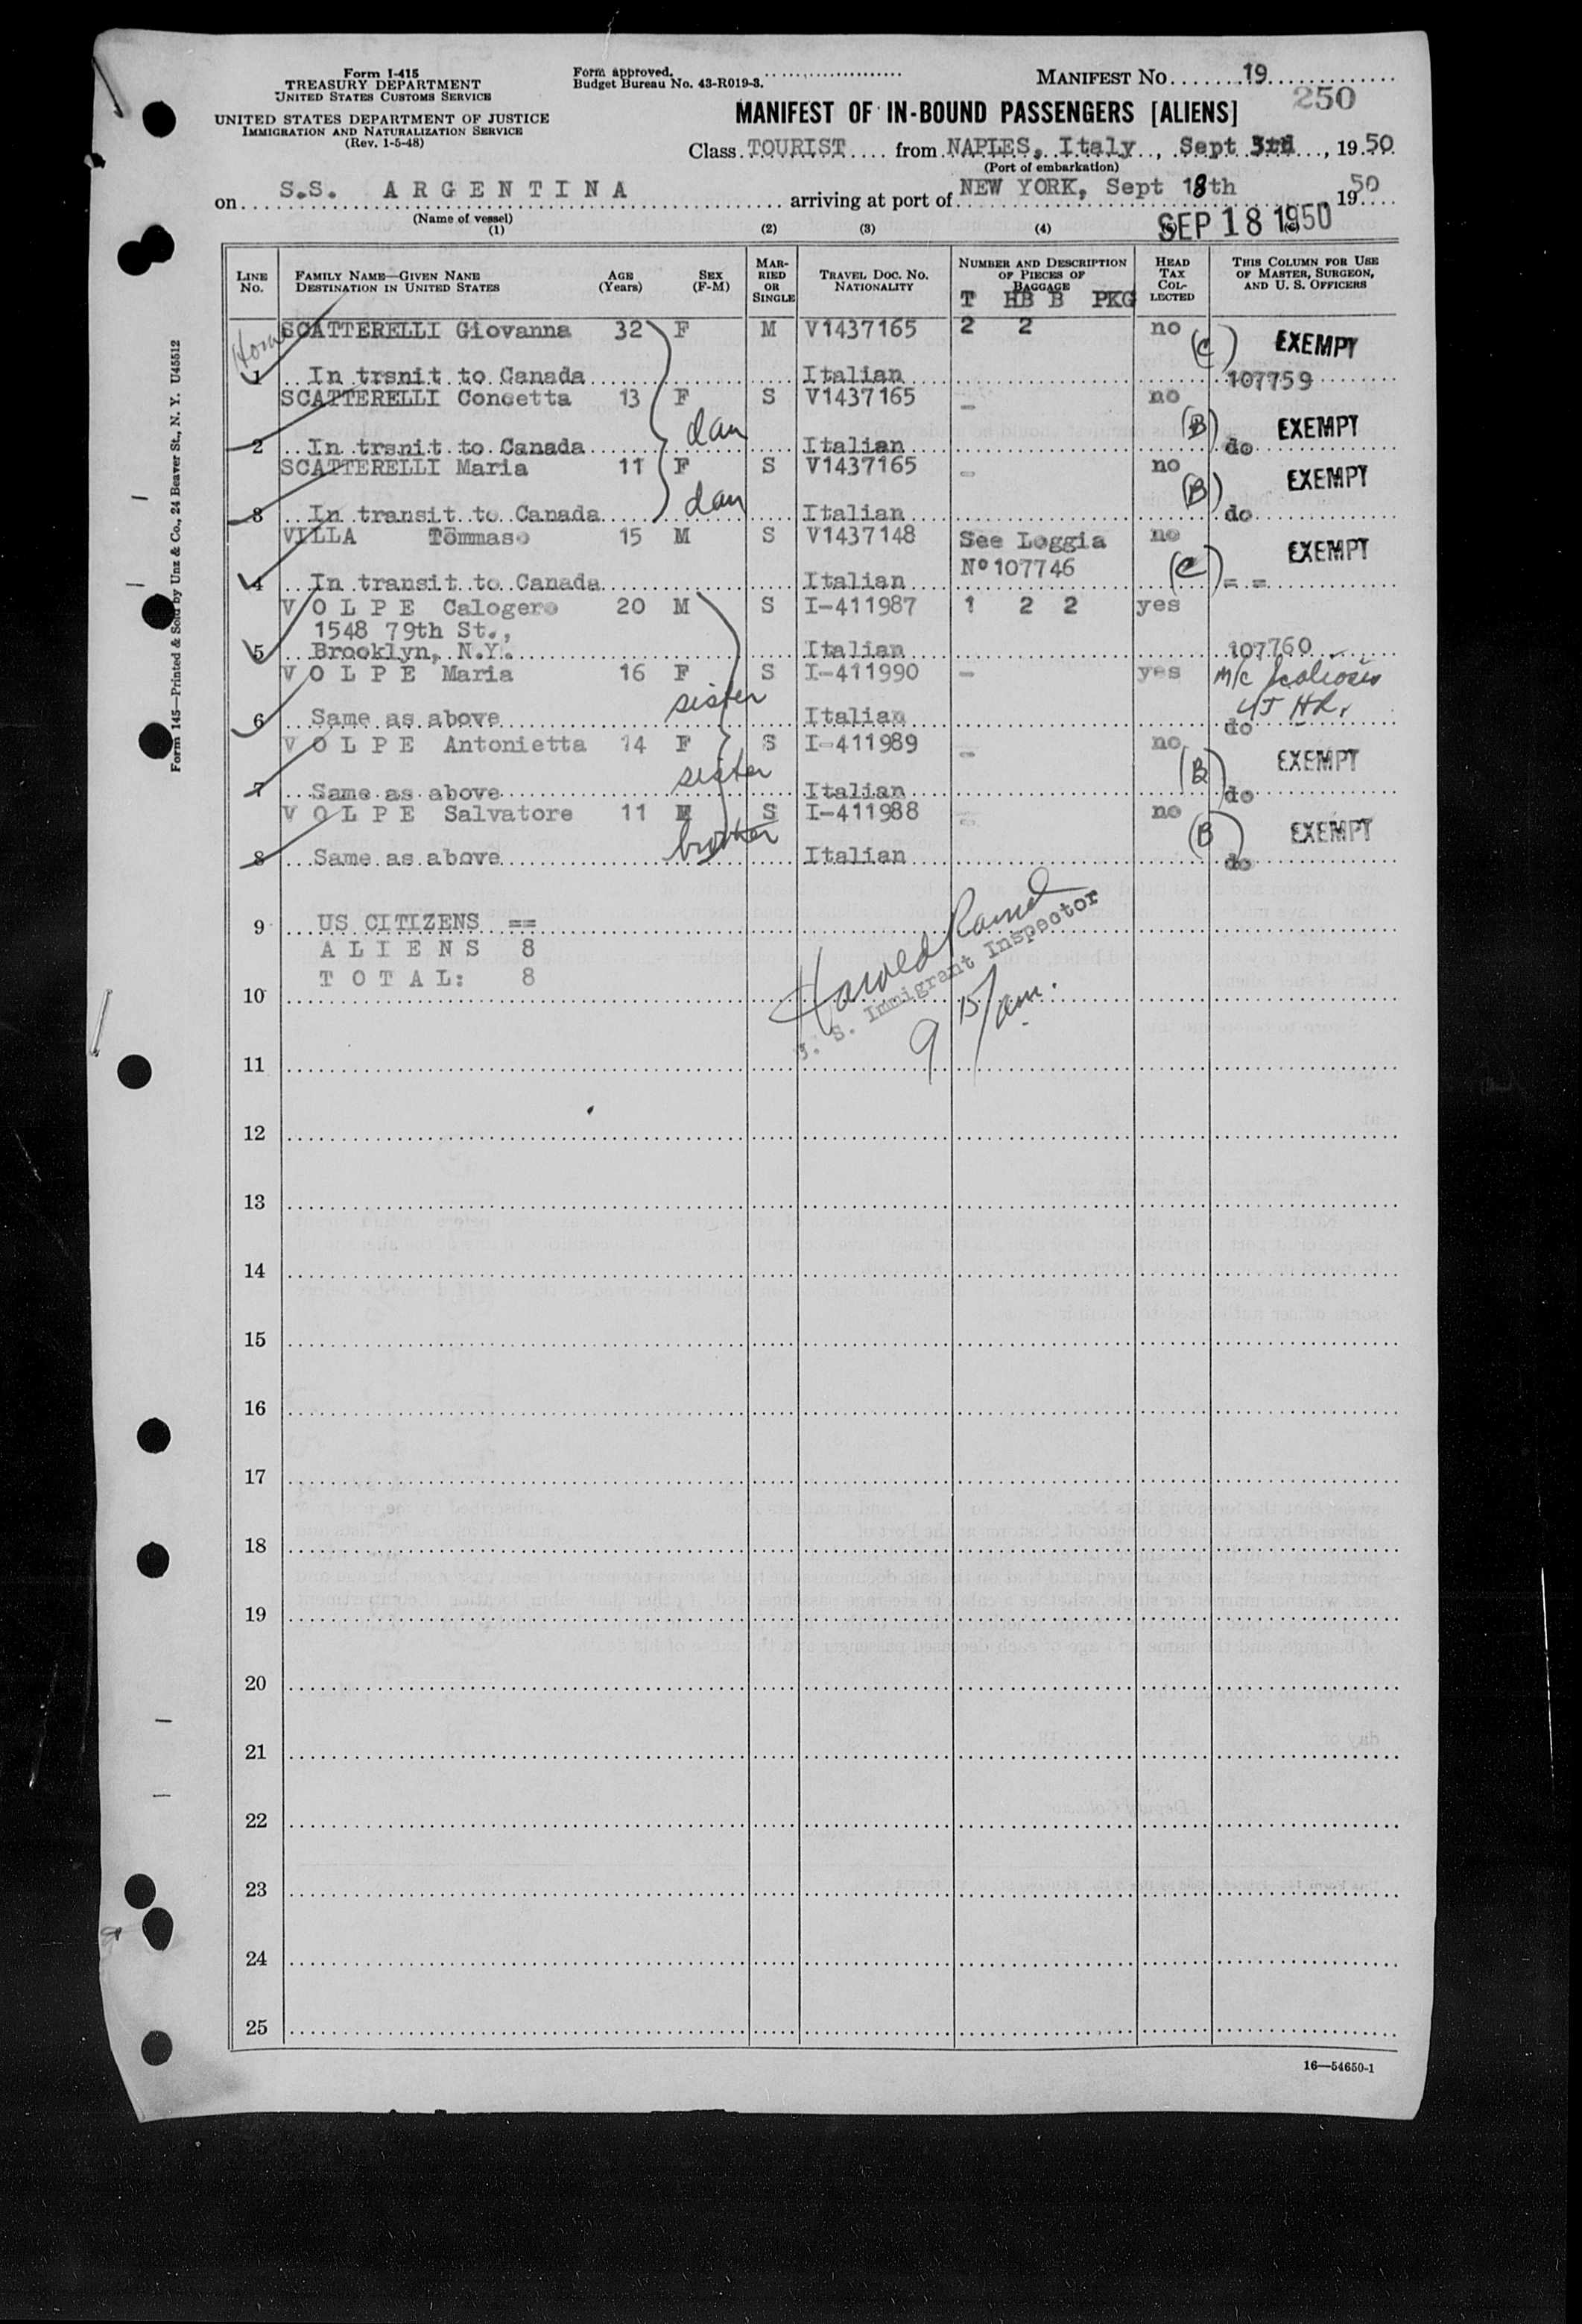 Form I-415
TREASURY DEPARTMENT
UNITED STATES CUSTOMS SERVICE
UNITED STATES DEPARTMENT OF JUSTICE
IMMIGRATION AND NATURALIZATION SERVICE
(Rev. 1-5-48)
Form approved.
Budget Bureau No. 43-R019-3.
MANIFEST NO. 19
250
MANIFEST OF IN-BOUND PASSENGERS [ALIENS]
Class TOURIST from NAPLES, Italy, Sept 3rd, 19 50
(Port of embarkation)
on S.S. ARGENTINA arriving at port of NEW YORK, Sept 18th 19 50
(Name of vessel)
SEP 18 1950
(1) (2) (3) (4)
LINE NO. FAMILY NAME—GIVEN NANE DESTINATION IN UNITED STATES AGE (Years) SEX (F-M) MARRIED OR SINGLE TRAVEL DOC. NO. NATIONALITY NUMBER AND DESCRIPTION OF PIECES OF BAGGAGE HEAD TAX COLLECTED THIS COLUMN FOR USE OF MASTER, SURGEON, AND U. S. OFFICERS
T HB B PKG
SCATTERELLI Giovanna 32 F M V1437165 2 2 no (C) EXEMPT
1 In trsnit to Canada Italian 107759
SCATTERELLI Concetta 13 F S V1437165 - no (B) EXEMPT
2 In trsnit to Canada dau Italian do
SCATTERELLI Maria 11 F S V1437165 - no (B) EXEMPT
3 In transit to Canada dau Italian do
VILLA Tommaso 15 M S V1437148 See Loggia no EXEMPT
Nº 107746
4 In transit to Canada Italian (C) = =
VOLPE Calogero 20 M S I-411987 1 2 2 yes
1548 79th St.,
5 Brooklyn, N.Y. Italian 107760
VOLPE Maria 16 F S I-411990 - yes m/c scoliosis
6 Same as above sister Italian do
VOLPE Antonietta 14 F S I-411989 - no (B) EXEMPT
7 Same as above sister Italian do
VOLPE Salvatore 11 S I-411988 - no (B) EXEMPT
8 Same as above brother Italian do
9 US CITIZENS ==
ALIENS 8
TOTAL: 8
10
Harold
U. S. Immigrant Inspector
9 15/am.
11
12
13
14
15
16
17
18
19
20
21
22
23
24
25
16—54650-1
Form 145—Printed & Sold by Unz & Co., 24 Beaver St., N. Y. U45512